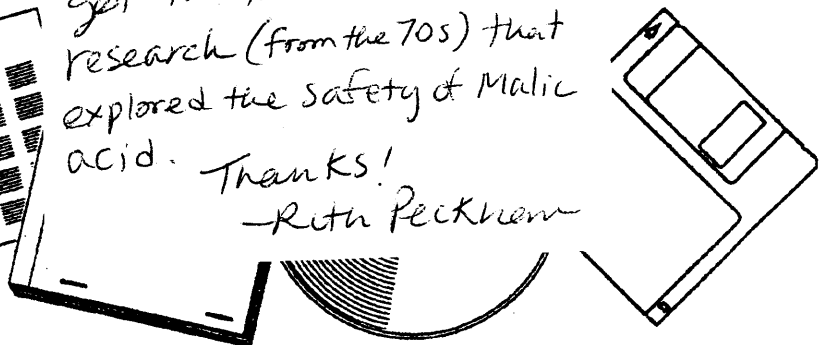 get
research (from the 70s) that
explored the safety of Malic
acid. Thanks!
-Ruth Peckham